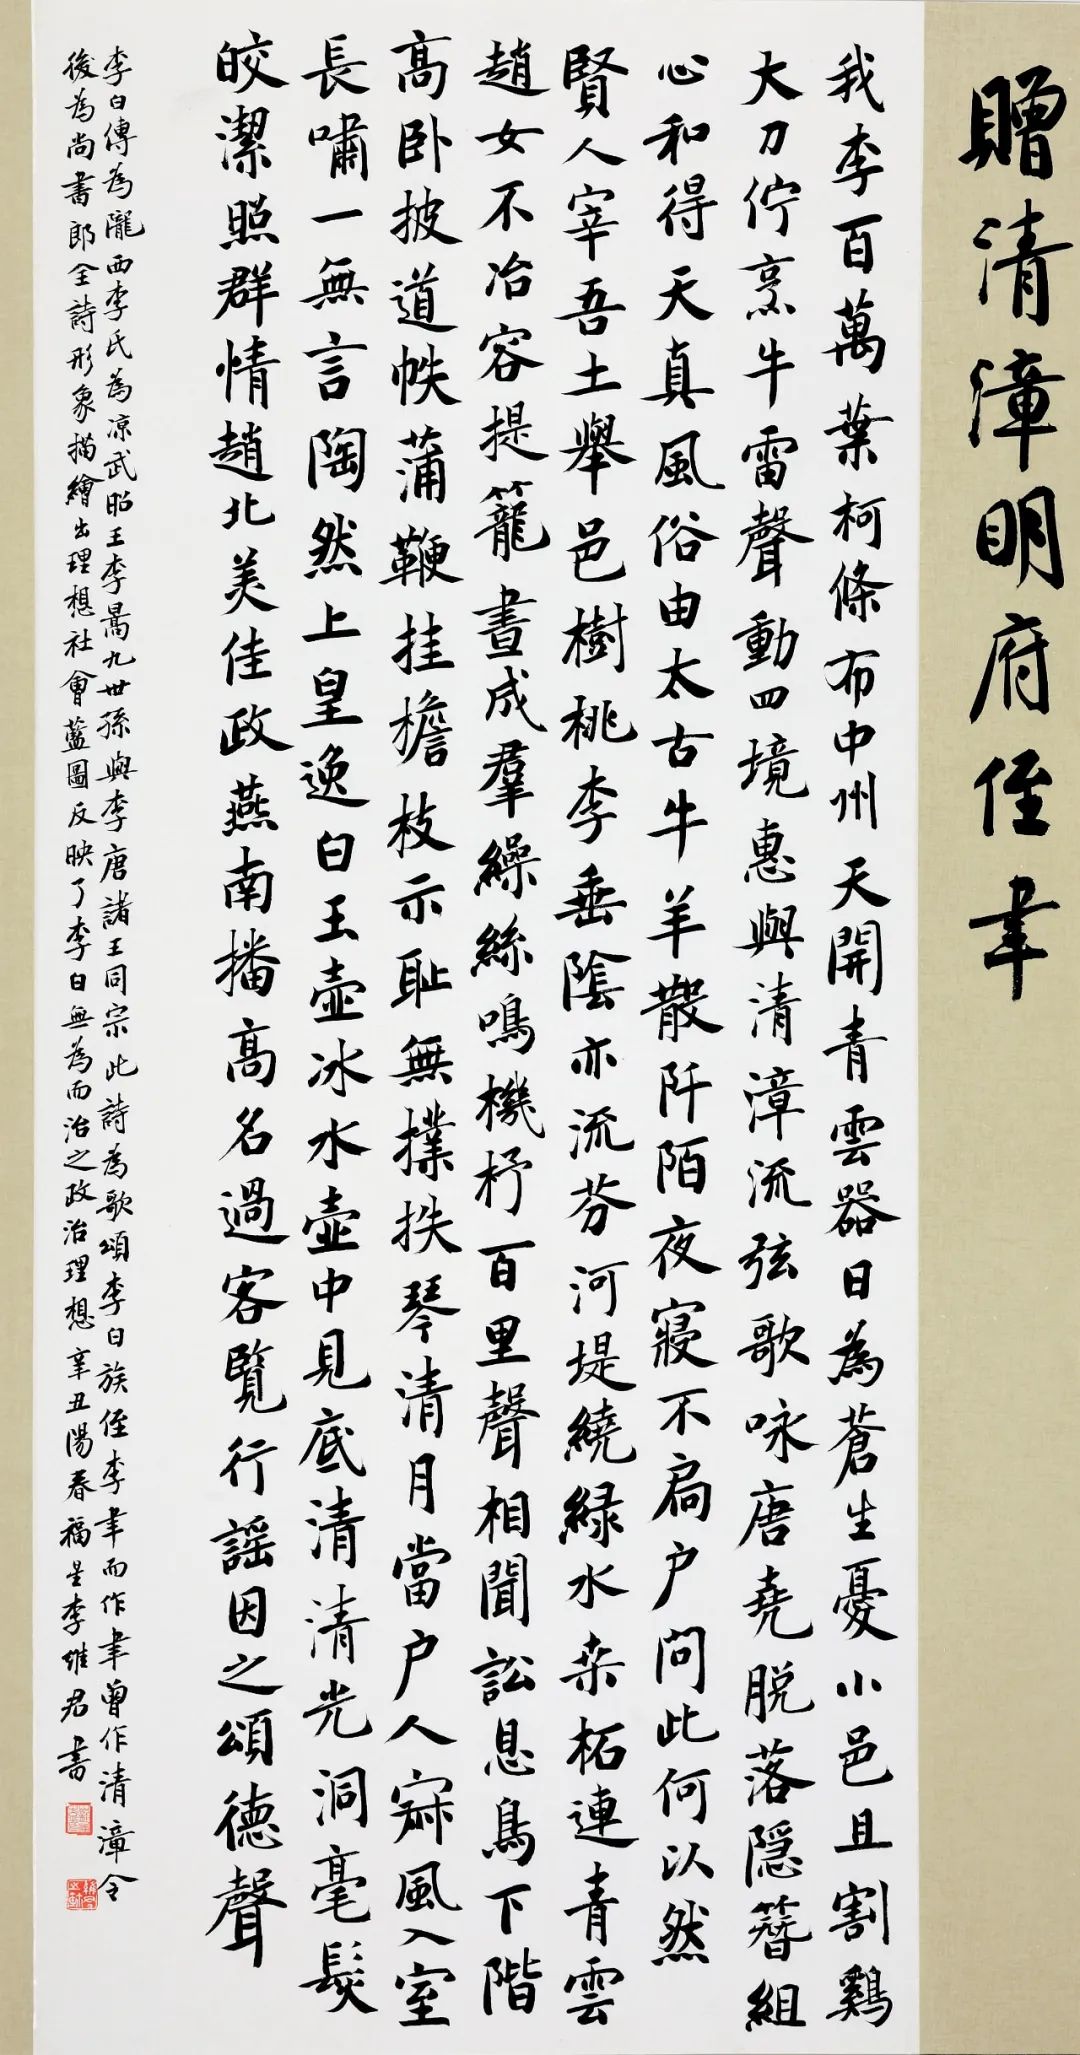 贈清漳明府侄聿
我李百萬葉柯條布中州天開青雲器日為蒼生憂小邑且割鷄
大刀佇烹牛雷聲動四境惠與清漳流弦歌咏唐堯脱落隠簪組
心和得天真風俗由太古牛羊散阡陌夜寢不扃户問此何以然
賢人宰吾土舉邑樹桃李垂陰亦流芬河堤繞緑水桒柘連青雲
趙女不冶容提籠晝成羣繰絲鳴機杼百里聲相聞訟息鳥下階
高卧披道帙蒲鞭挂檐枝示恥無撲抶琴清月當户人寂風入室
長嘯一無言陶然上皇逸白玉壺冰水壺中見底清清光洞毫髮
皎潔照群情趙北美佳政燕南播高名過客覽行謡因之頌德聲
李白傳為隴西李氏為凉武昭王李暠九世孫與李唐諸王同宗此詩為歌頌李白族侄李聿而作聿曾作清漳令
後為尚書郎全詩形象描繪出理想社會藍圖反映了李白無為而治之政治理想辛丑陽春福生李维君書